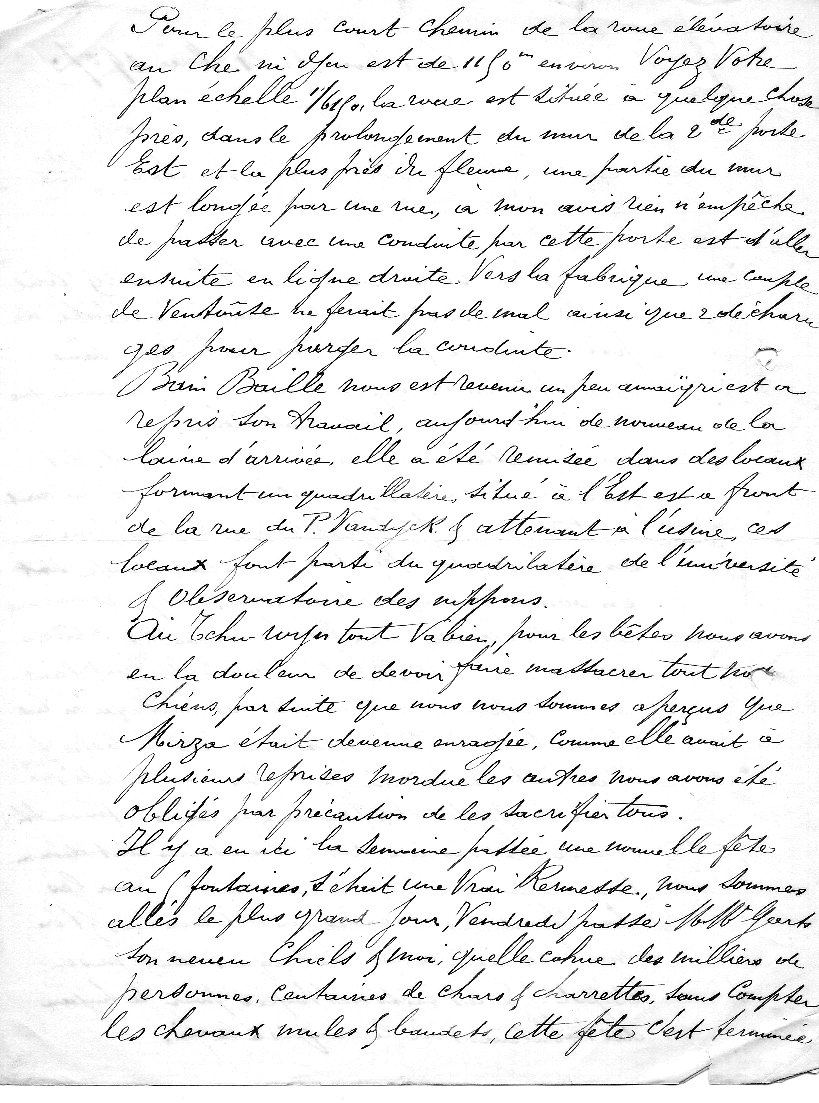 Pour le plus court chemin de la roue élévatoire
au Che ni Yen est de 1150m environ Voyez Votre
plan échelle la roue est située à quelque chose
près, dans le prolongement du mur de la 2de porte
Est et la plus près du fleuve, une partie du mur
est longée par une rue, à mon avis rien n'empêche
de passer avec une conduite par cette porte est d'aller
ensuite en ligne droite Vers la fabrique une couple
de Ventouse ne ferait pas de mal ainsi que 2 déchar
ges pour purger la conduite.
Baille nous est revenu un peu amaïgri est a
repris son travail, aujourd'hui de nouveau de la
laine d'arrivée, elle a été remisée dans des locaux
formant un quadrillatère, situé à l'Est est a front
de la rue du P. Vandyck & attenant à l'usine, ces
locaux font parti du quadrilatère de l'université
& Observatoire des nippons.
Au tout Va bien, pour les bêtes nous avons
eu la douleur de devoir faire massacrer tout nos
chiens, par suite que nous nous sommes aperçus que
Mirza était devenue enragée, comme elle avait à
plusieurs reprises mordue les autres nous avons été
obligés par précaution de les sacrifier tous.
Il y a eu ici la semaine passée une nouvelle fête
au 5 fontaines, s'était une Vrai Kermesse, nous sommes
allés le plus grand jour, Vendredi passé Geerts
son neveu & moi, quelle cohue des milliers de
personnes, centaines de chars & charrettes, sans compter
les chevaux mules & baudets, cette fête c'est terminée